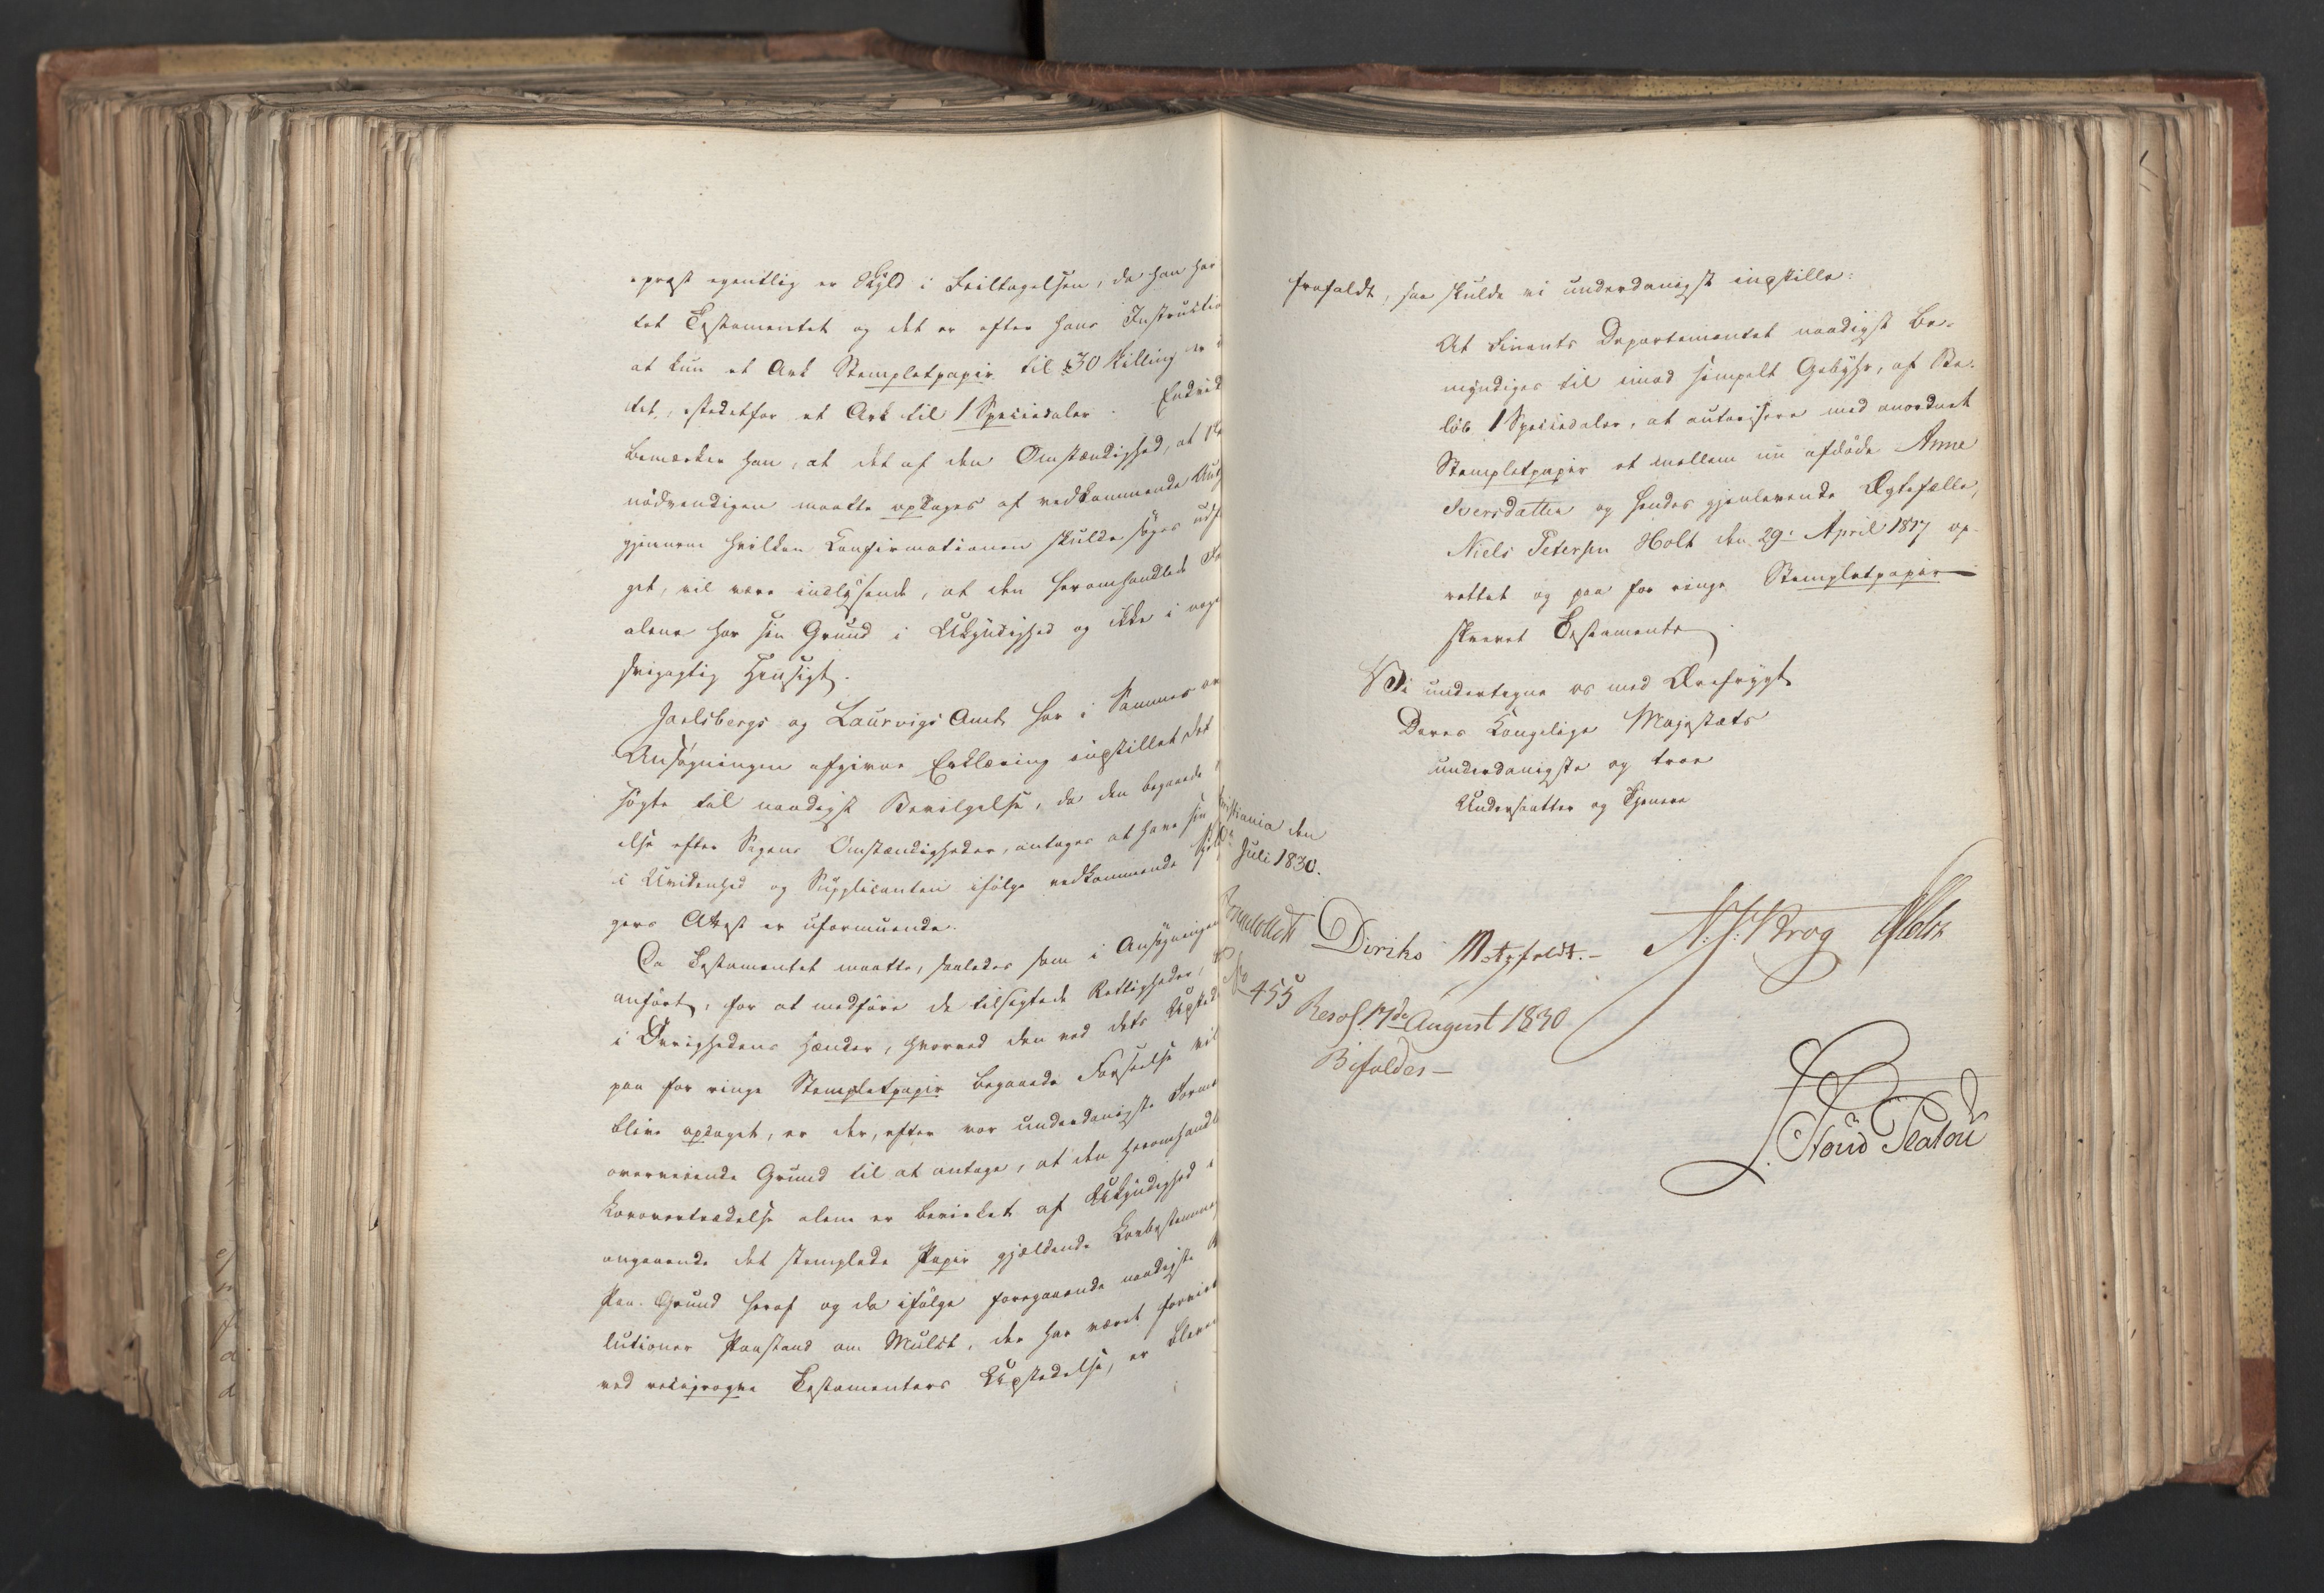 -prest egentlig er Skyld i Feiltagelsen, da han har
tet Testamentet og det er efter hans Instructio
at kun et Ark Stempletpapir til 30 Skilling er
tet, istedetfor et Ark til 1 Speciedaler. Endvid
bemærker han, at det af den Omstændighed, at
nödvendigen maatte opdages af vedkommende
gjennem hvilken Confirmationen skulde söges
get, vil være indlysende, at den heromhandlede
alene har sin Grund i Ukyndighed og ikke i nog
svigagtig Hensigt.
Jarlsbergs og Laurvigs Amt har i Sammes
Ansögningen afgivne Erklæring indstillet det
sögte til naadigst Bevilgelse, da den begaaede
else efter Sagens Omstændigheder, antages at have sin
i Uvidenhed og Supplicanten ifölge vedkommende
gers Attest er uformuende.
Da Testamentet maatte, saaledes som i Ansögningen
anfört, for at medföre de tilsigtede Rettigheder,
i Övrighedens Hænder, hvorved den ved dets Udsted
paa for ringe Stempletpapir begaaede Forseelse vil
blive opdaget, er der, efter vor underdanigste Forme
overveiende Grund til at antage, at den heromhandl
Lovovertrædelse alene er bevirket af Ukyndighed
angaaende det stemplede Papir gjældende Lovbestemme
Paa Grund heraf og da ifölge foregaaende naadigste
lutioner Paastand om Mulct, der har været forvirk
ved reciproqve Testamenters Udstedelse, er bleven
frafaldt, saa skulde vi underdanigst indstille:
At Finants Departementet naadigst be-
myndiges til imod simpelt Gebyhr, af Be-
löb 1 Speciedaler, at autorisere med anordnet
Stempletpapir et mellem nu afdöde Anne
Iversdatter og hendes gjenlevende Ægtefælle,
Niels Petersen Holt den 29: April 1817 op-
rettet og paa for ringe Stempletpapir
skrevet Testamente.
Vi undertegne os med Ærefrygt
Deres Kongelige Majestæts
underdanigste og troe
Undersaatter og Tjenere
istiania den
Juli 1830.
Diriks Motzfeldt.- N. J. Krog
No 455
Resol. 17de August 1830
Bifaldes-
Stoud Platou